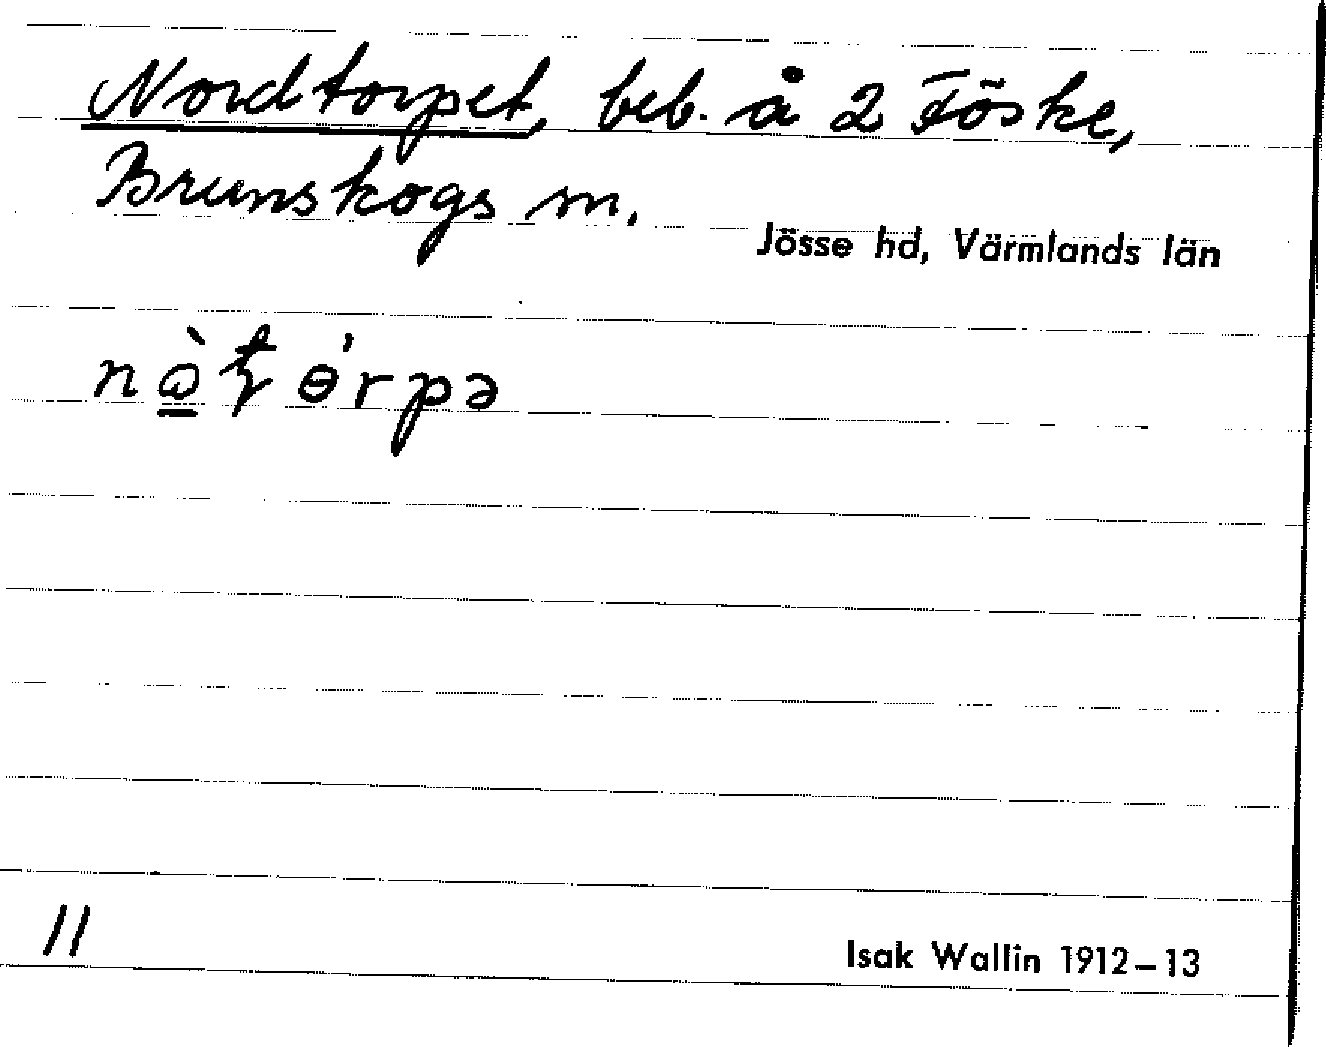 Nordtorpet, beb. å 2 Töske,
Brunskogs sn.
Jösse hd, Värmlands län
11
Isak Wallin 1912–13